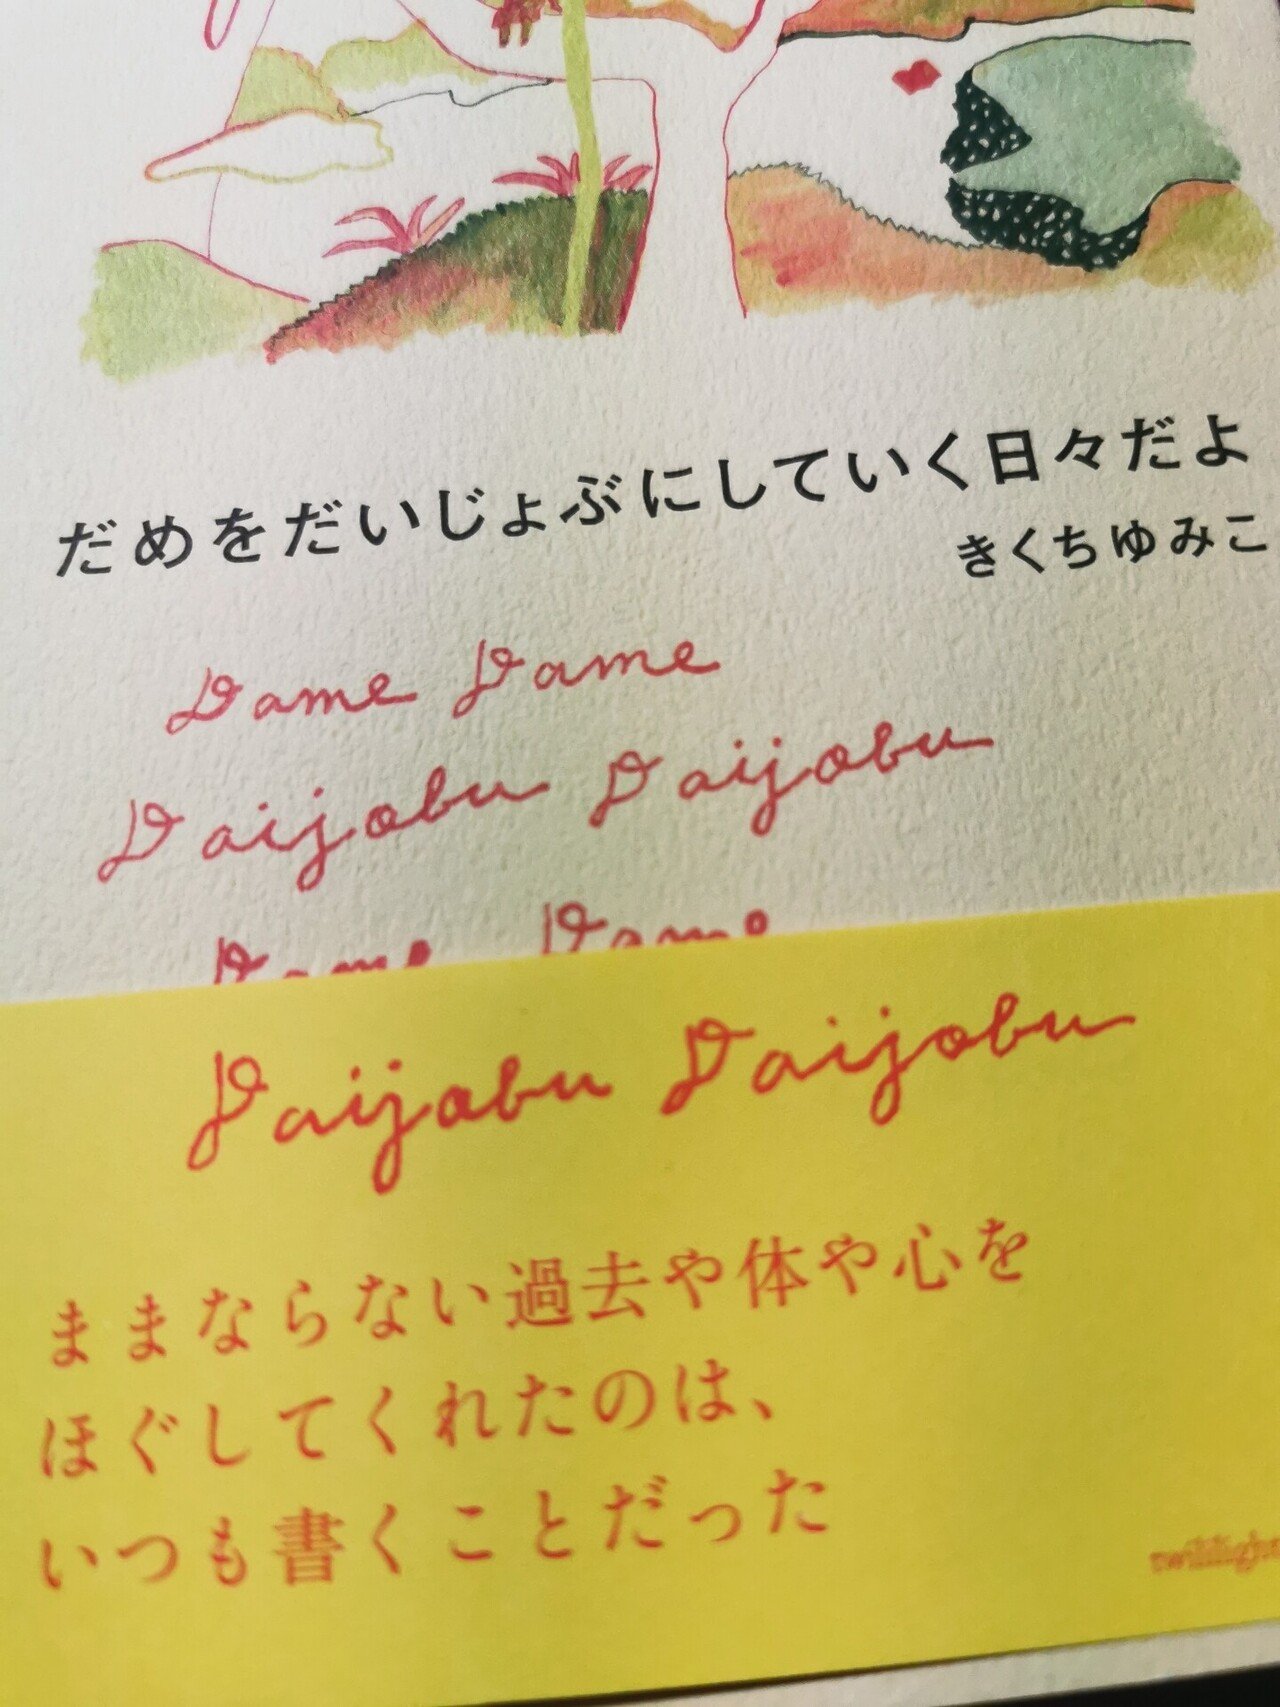 だめをだいじょぶにしていく日々だよ
きくちゆみこ
Dame Dame
Daijobu Daijobu
Dame Dame
Daijobu Daijobu
ままならない過去や体や心を
ほぐしてくれたのは、
いつも書くことだった